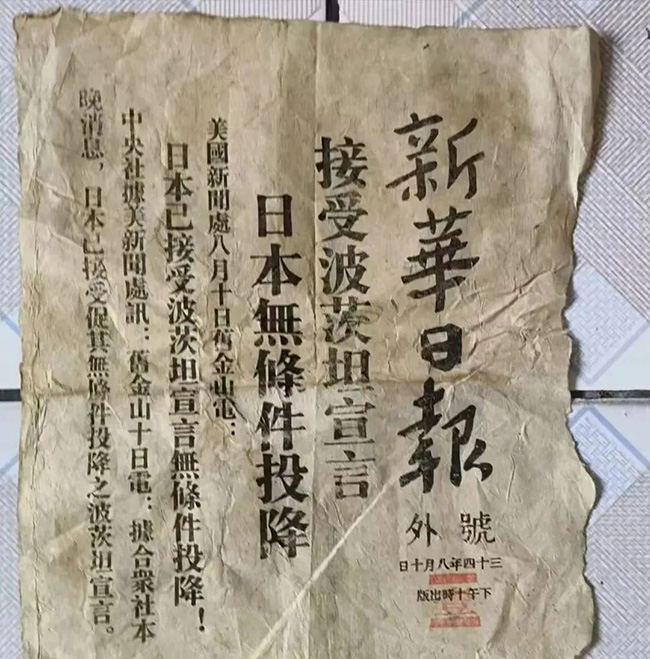 新華日報
號外
三十四年八月十日
下午十時出版
接受波茨坦宣言
日本無條件投降
美國新聞處八月十日舊金山電：
日本已接受波茨坦宣言無條件投降！
中央社據美新聞處訊：舊金山十日電：據合衆社本
晚消息，日本已接受促其無條件投降之波茨坦宣言。